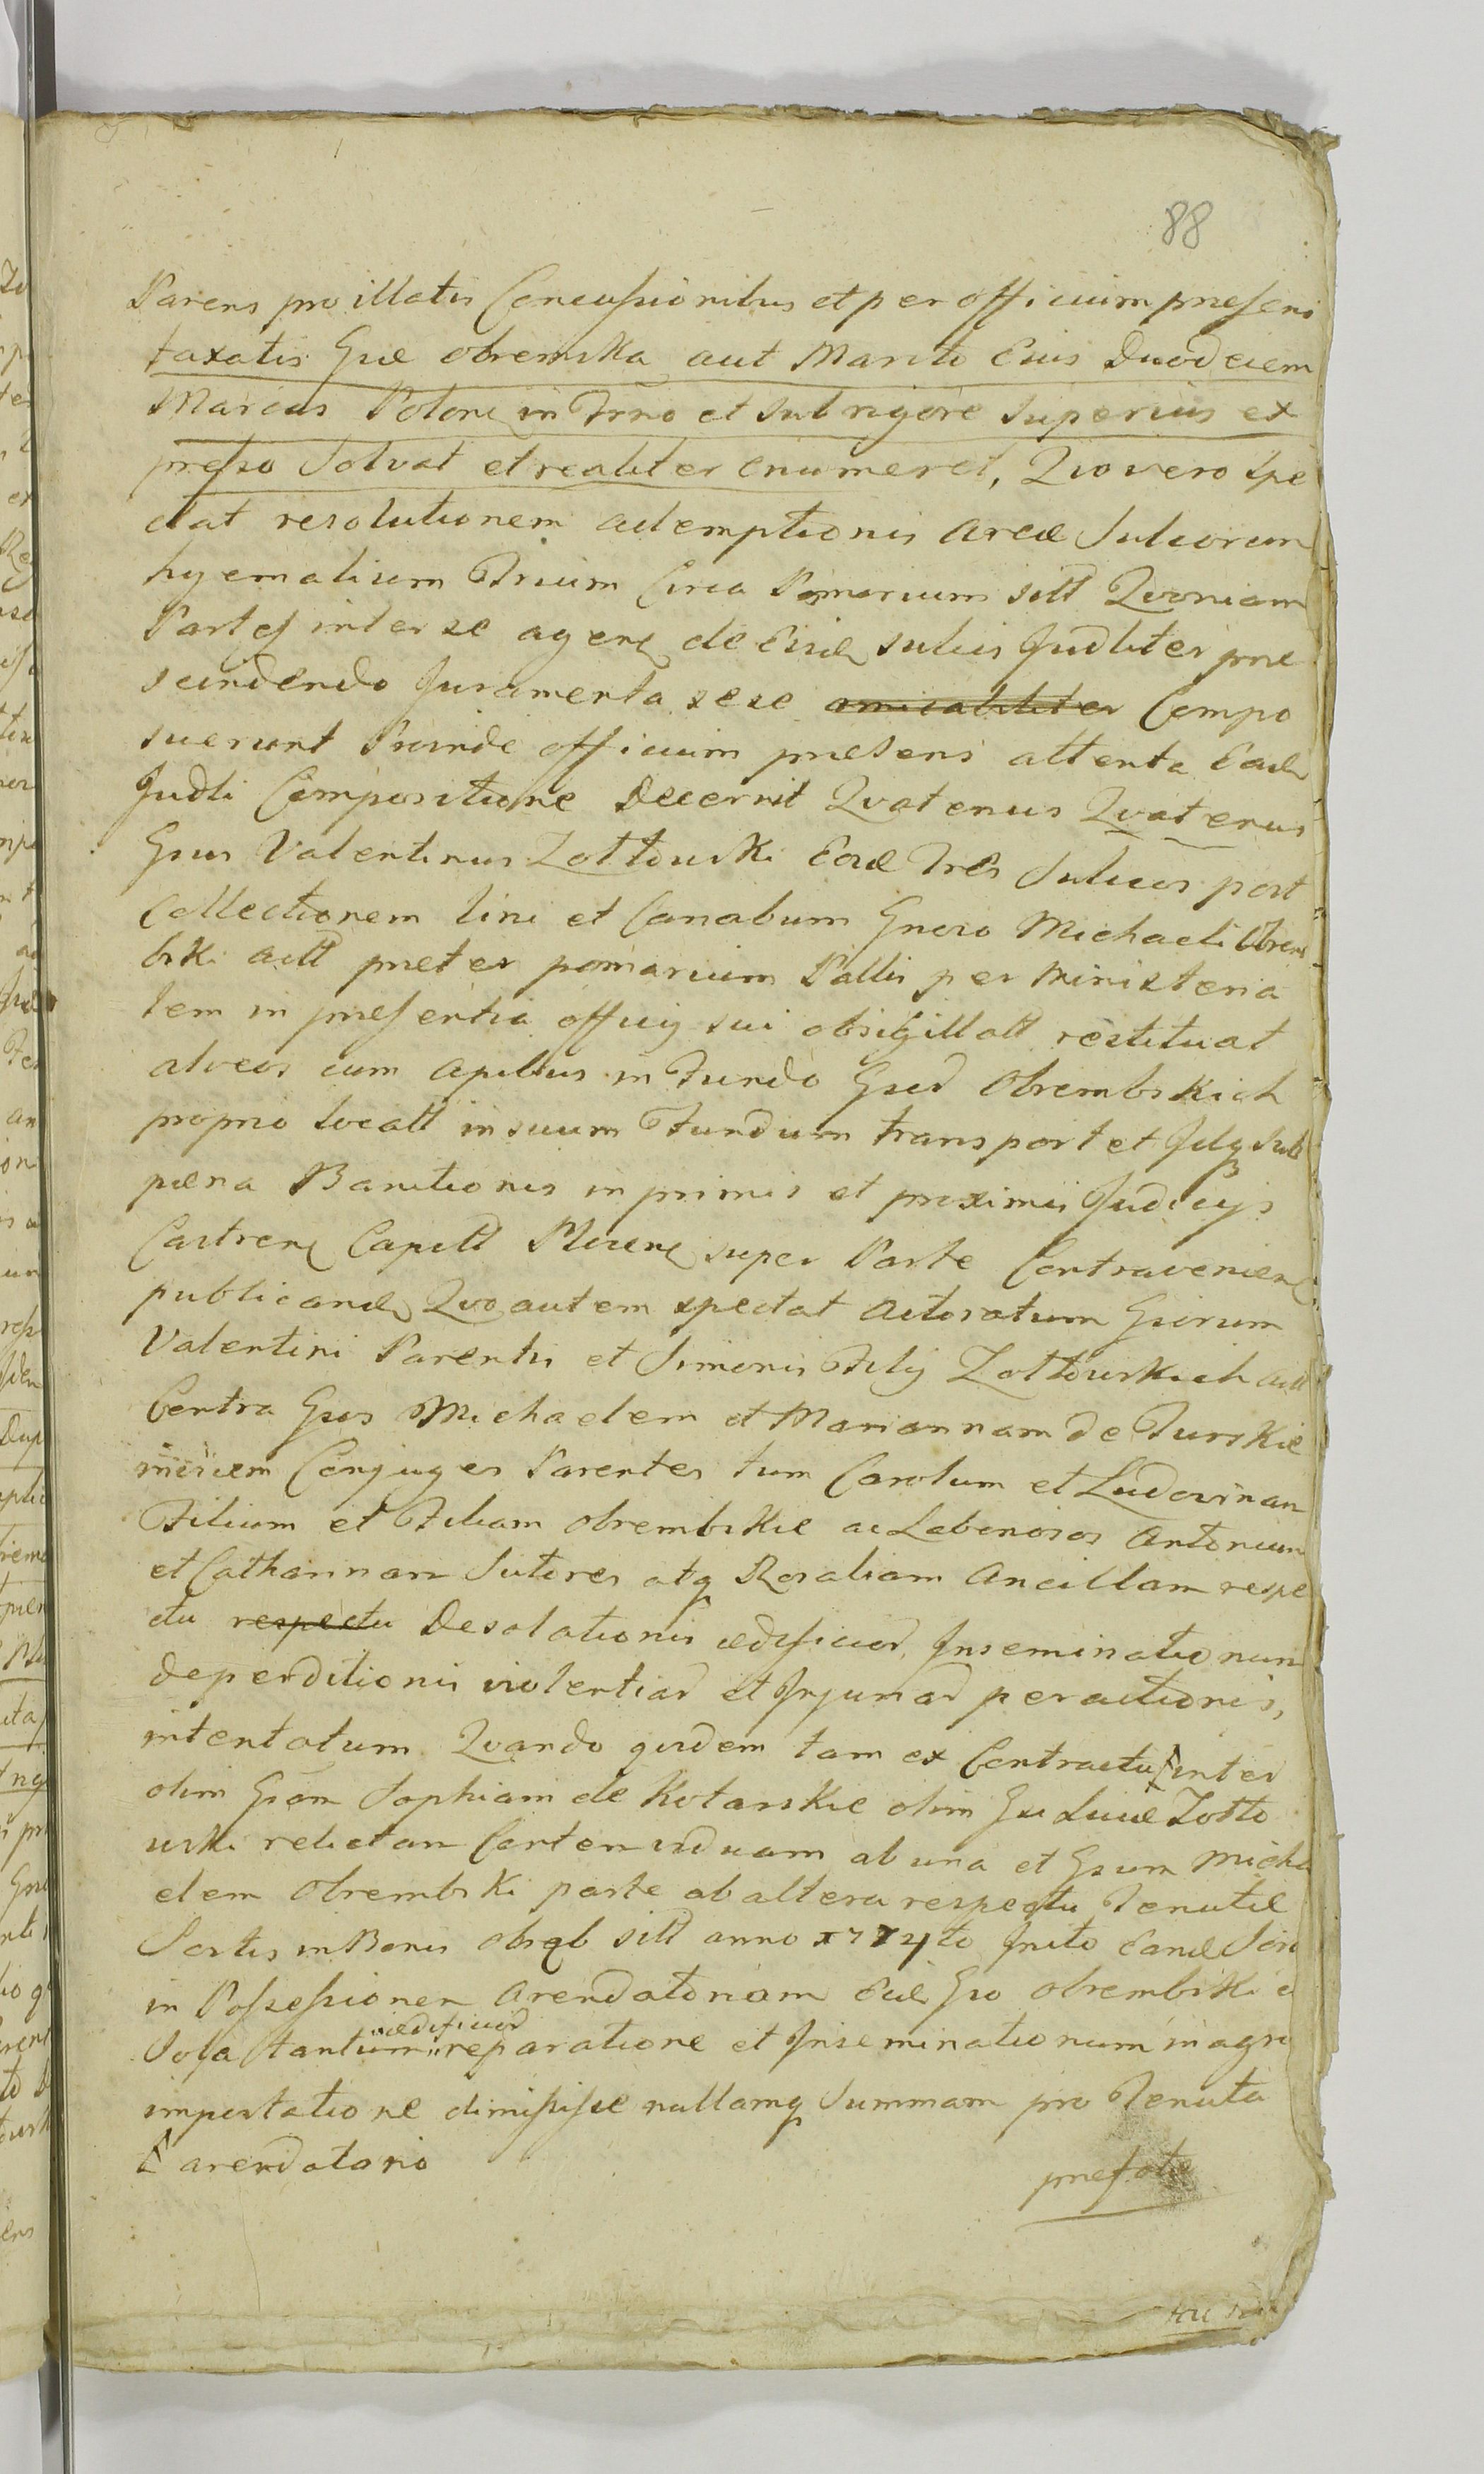 88
Parens pro illatis Concussionibus et per officium præsens
taxatis Gsæ Obremska aut Marito Eius Duodecem
Marcas Polone in Trno et sub rigore superius ex
presso Solvat et realiter enumeret, Quo vero spe
ctat resolutionem ademptionis areæ Sulcorum
hyemalium Trium Circa Pomarium sitt Quoniam
Partes inter se agen de Eisd sulcis Judliter præ
scindendo Juramenta sese amicabiliter Compo
suerunt Proinde officium præsens attenta Ead
Judli Compositione Decernit Quatenus Quatenus
Gsus Valentinus Zottowski Eosd Tres Sulcos post
Collectionem lini et Canabum Gneroso Michaeli Obrem
bski actt præter pomarium Pallis per ministeria
lem in præsentia officij sui obsigillatt restituat
alveos cum apibus in Fundo Gsor Obrembskich
proprio locatt in suum Fundum transportet Idq sub
pæna Banitionis in primis et proximis Judicijs
Castren Capitt Plocen super Parte Contravenien
publicand Quo autem spectat actoratum Gsorum
Valentini Parentis et Simonis Filij Zottowskich actt
Contra Gsos Michaelem et Mariannam de Turskie
invicem Conjuges Parentes tum Carolum et Ludovinam
Filium et Filiam Obrembskie ac Laboriosos Antonium
et Catharinnam Sutores atq Rosaliam Ancillam respe
ctu respectu Desolationis ædificior, Inseminationum
deperditionis violentiar et Injuriar peractionis,
intentatum Quando quidem tam ex Contractu inter
olim Gsam Sophiam de Kotarskie olim Gsi Lucæ Zotto
wski relictam Consortem viduam ab una et Gsum Micha
elem Obrembski parte ab altera respectu Tenutæ
Sortis in Bonis Obręb sitt anno 1774to Inito Eand Sor
in Possessionem Arendatoriam Eid Gso Obrembski a
Sola tantum ædificior reparatione et Inseminationum in agro
importatione dimisisse nullamq Summam pro Tenuta
arendatorio
præfata